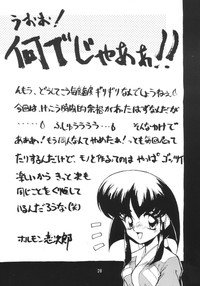 うおお!
何でじゃああ!!
んもう、どうしてこう毎度毎度ギリギリなんでしょうねぇ
今回は、けっこう時間的に余裕があったはずなんだが
ふしゅうううう… そんなわけで
あああ!もうなんてやめたぁ!と毎回言って
たりするんだけど、モノを作るってのは やっぱ ゴッツイ
楽しいから きっと 次も
同じことをくり返して
いるんだろうな(笑)
ホルモン恵次郎